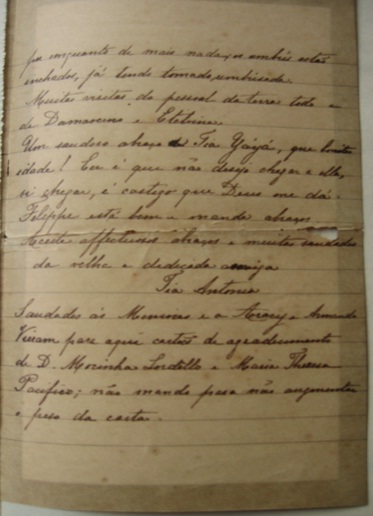 por enquanto de mais nada, os umbús estão
inchados, já tendo tomado umbusada.
Muitas visitas do pessoal da terra todo e
de Damasceno e Etelvina.
Um saudoso abraço de Tia Yáyá, que bonita
idade! Eu é que não desejo chegar a ella,
si chegar, é castigo que Deus me dá.
Felippe está bem e manda abraços.
Acceite affectuosos abraços e muitas saudades
da velha e dedicada amiga
Tia Antonia
Saudades ás Meninas e a Aracy e Armando
Vieram para aqui cartas de agradecimento
de D. Mocinha Lordello e Maria Theresa
Pacifico; não mando para não augmentar
o peso da carta.